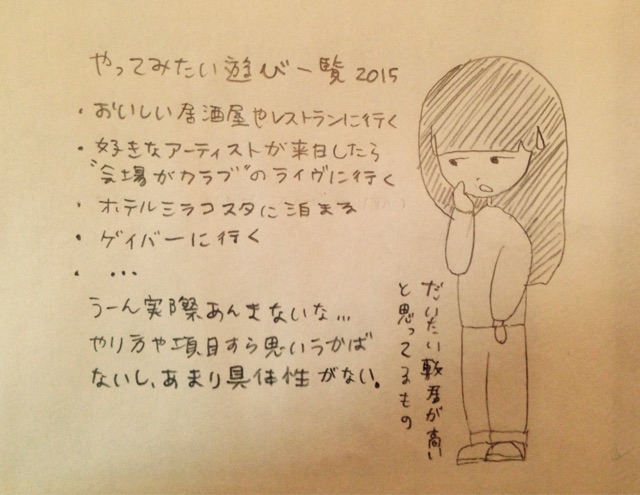 やってみたい遊び一覧 2015
・おいしい居酒屋やレストランに行く
・好きなアーティストが来日したら
"会場がクラブ"のライヴに行く
・ホテルミラコスタに泊まる
・ゲイバーに行く
・ …
うーん実際あんまないな…
やり方や項目すら思いうかば
ないし、あまり具体性がない。
だいたい敷居が高い
と思ってるもの